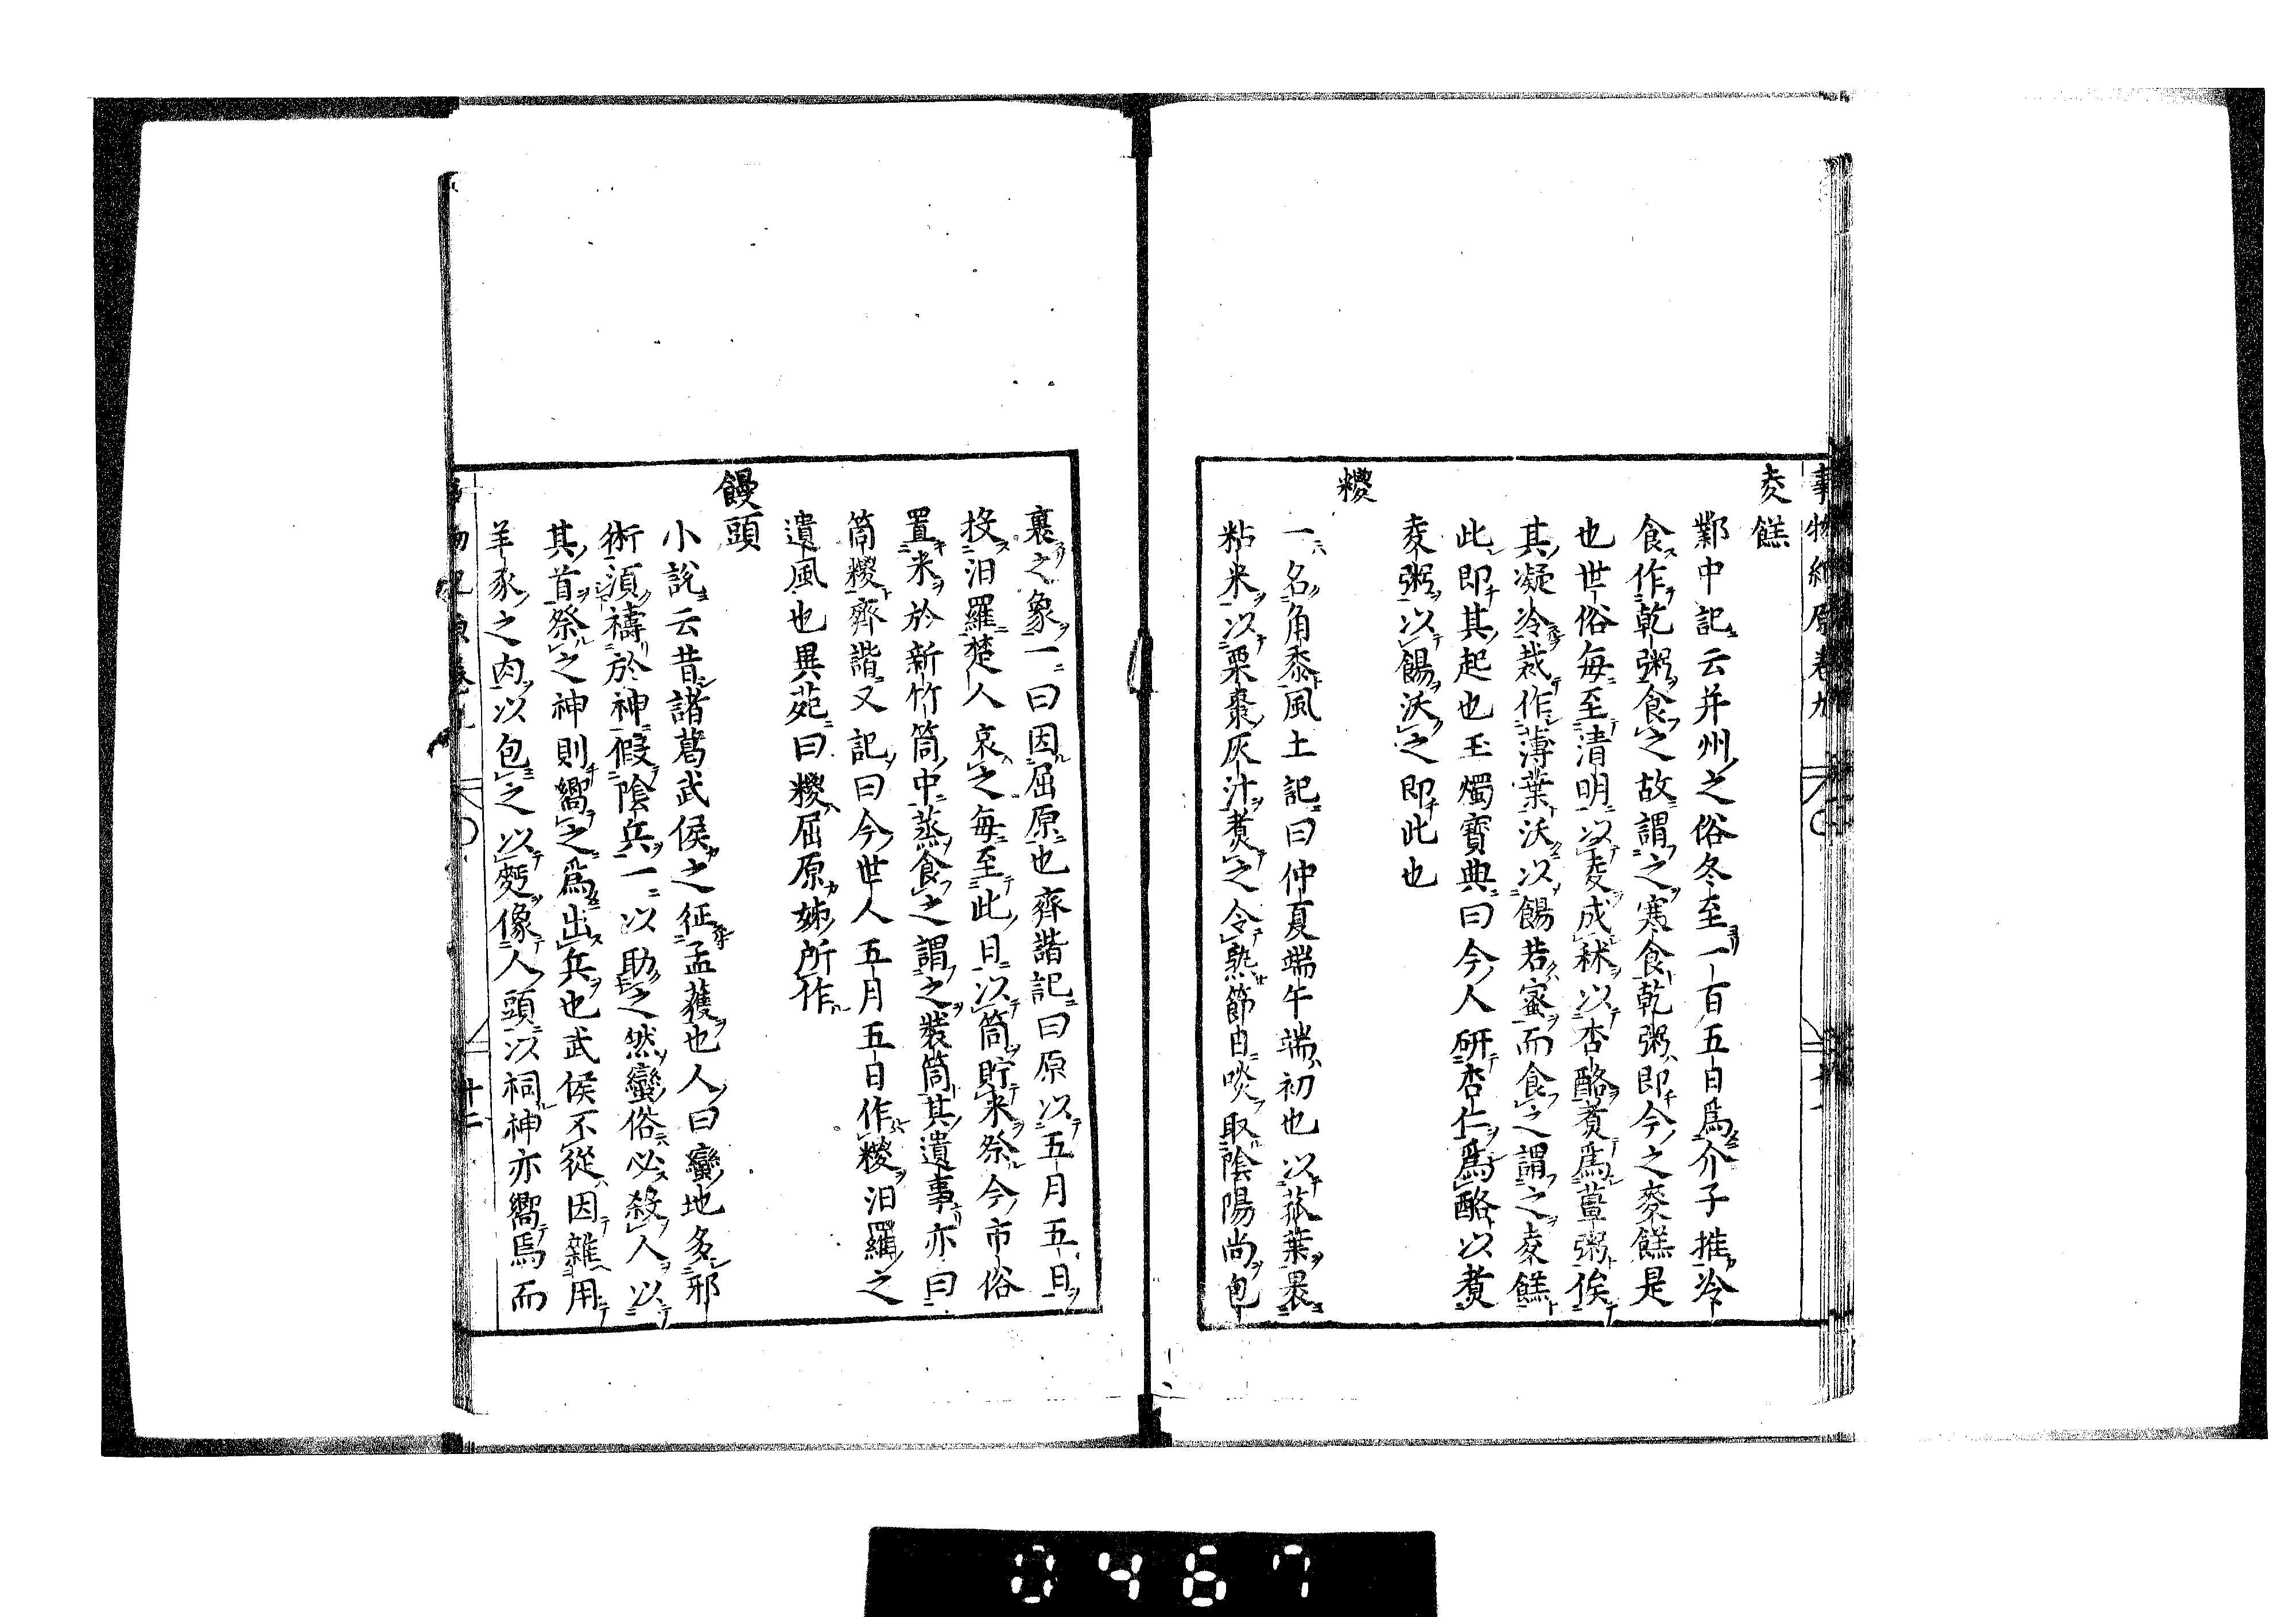 事物紀原卷九
麦餻
鄴中記云并州之俗冬至一百五日爲介子推冷
食作乾粥食之故謂之寒食乾粥即今之麥餻是
也世俗每至清明以麦成秫以杏酪煮爲薑粥俟
其凝冷裁作薄葉沃以餳若蜜而食之謂之麥餻
此即其起也玉燭寶典曰今人研杏仁爲酪以煮
麥粥以餳沃之即此也
糉
一名角黍風土記曰仲夏端午端初也以菰葉裹
粘米以栗棗灰汁煮之令熟節日啖取陰陽尚包
裹之象一曰因屈原也齊諧記曰原以五月五日
投汨羅楚人哀之每至此日以筒貯米祭今市俗
置米於新竹筒中蒸食之謂之裝筒其遺事亦曰
筒糉齊諧又記曰今世人五月五日作糉汨羅之
遺風也異苑曰糉屈原姊所作
饅頭
小說云昔諸葛武侯之征孟獲也人曰蠻地多邪
術須禱於神假陰兵一以助之然蠻俗必殺人以
其首祭之神則嚮之爲出兵也武侯不從因雜用
羊豕之肉以包之以麪像人頭以祠神亦嚮焉而
十二
0467